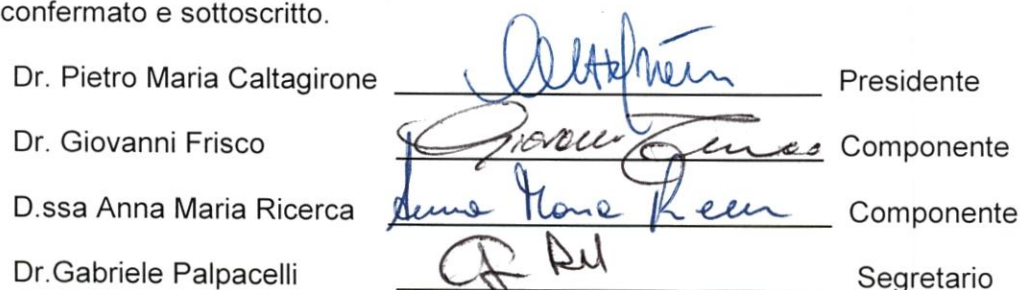 confermato e sottoscritto.
Dr. Pietro Maria Caltagirone Presidente
Dr. Giovanni Frisco Giovanni Componente
D.ssa Anna Maria Ricerca Anna Maria Componente
Dr.Gabriele Palpacelli Segretario